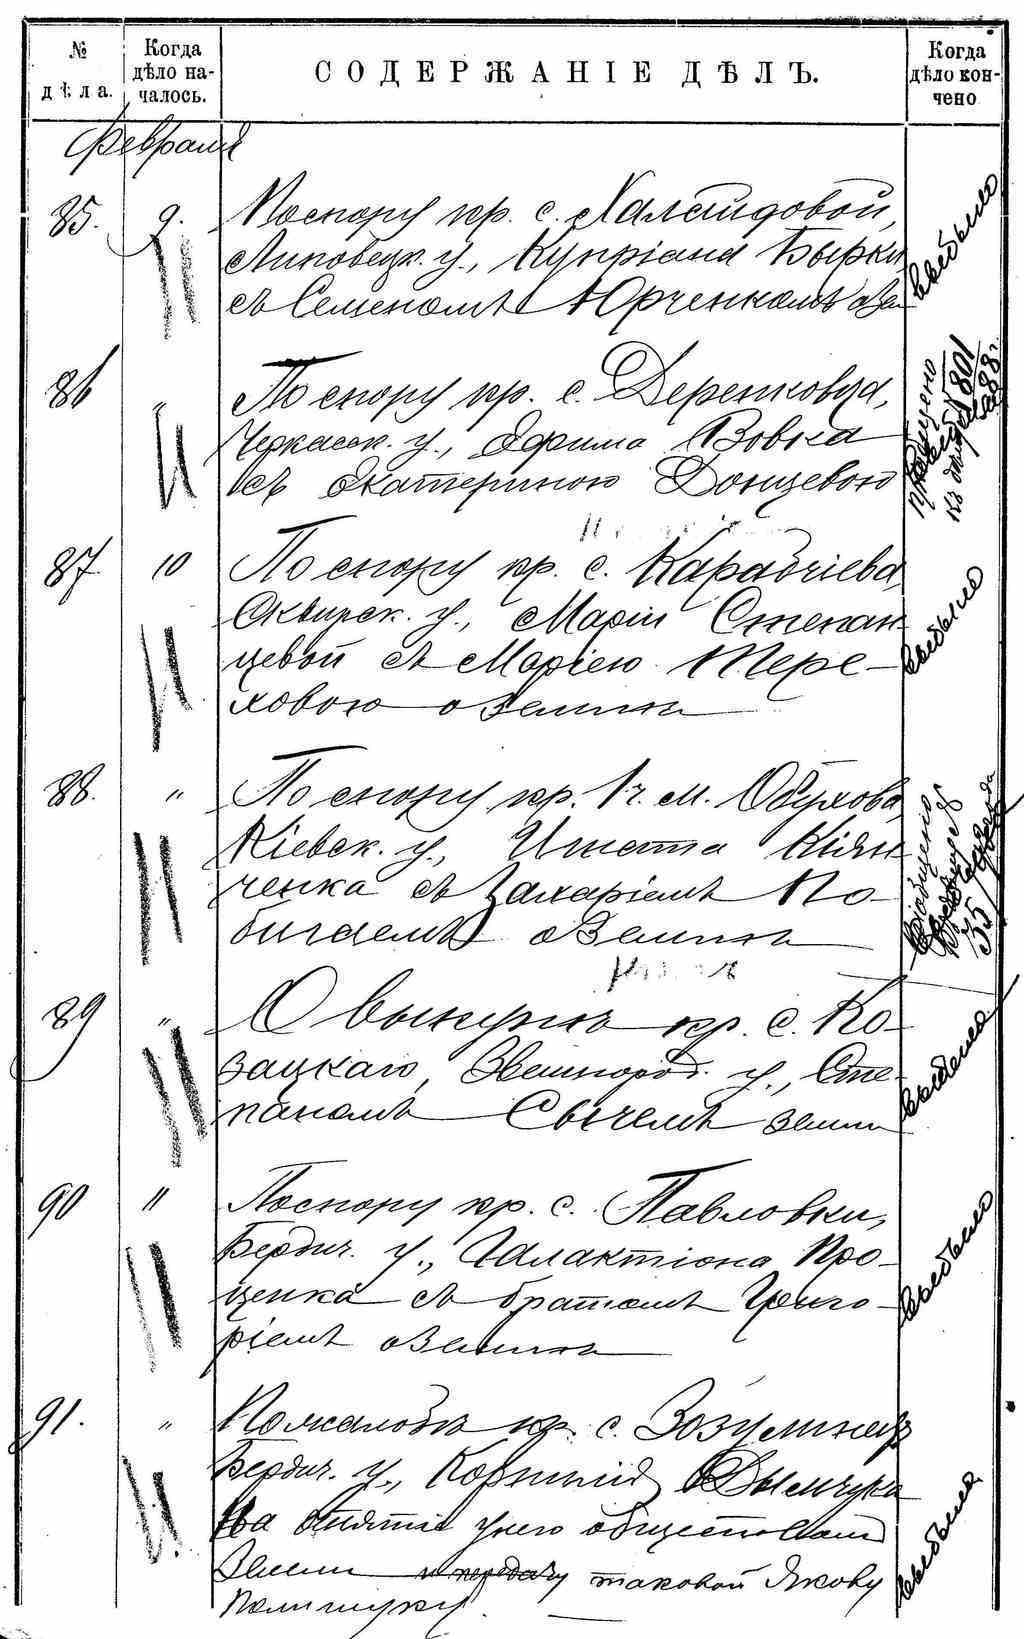 № дѣла.
Когда дѣло началось.
СОДЕРЖАНІЕ ДѢЛЪ.
Когда дѣло кончено
Февраля
85. 9. По спору кр. с. Халаидовой,
Липовецк. у., Купріана Бырки
съ Семеномъ Юрченкомъ о зем
выбыло
86 " По спору кр. с. Деренковца,
Черкасск. у., Ефима Вовка
съ Екатериною Донцевою
къ
87. 10 По спору кр. с. Карабчіева,
Сквирск. у., Маріи Степан-
цевой съ Маріею Тере-
ховою о землѣ
выбыло
88. " По спору кр. 1 ч. м. Обухова,
Кіевск. у., Игната Кіян-
ченка съ Захаріемъ По-
бигаемъ о землѣ
35
89 " О выкупѣ кр. с. Ко-
зацкаго, Звенигород. у., Сте-
паномъ Сычемъ земли
90 " По спору кр. с. Павловки,
Бердич. у., Галактіона Про-
ценка съ братомъ Григо-
ріемъ о землѣ
выбыло
91. " По жалобѣ кр. с. Зозулинец
Бердич. у., Корнилія Дымчука
на отнятіе у него обществом
земли и передачу таковой Якову
Полищуку.
выбыло